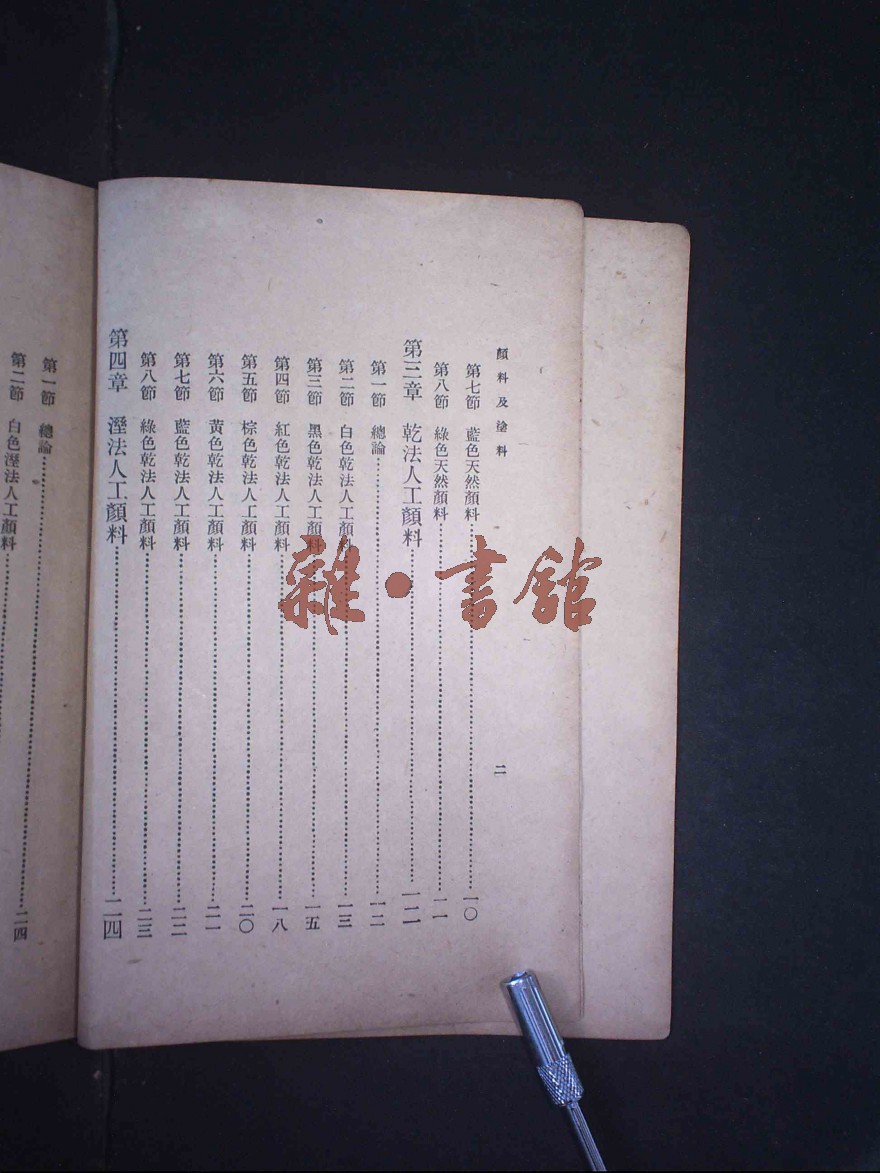 顏料及塗料 二
第七節 藍色天然顏料 一〇
第八節 綠色天然顏料 一一
第三章 乾法人工顏料 一二
第一節 總論 一二
第二節 白色乾法人工顏料 一三
第三節 黑色乾法人工顏料 一五
第四節 紅色乾法人工顏料 一八
第五節 棕色乾法人工顏料 二〇
第六節 黄色乾法人工顏料 二一
第七節 藍色乾法人工顏料 二二
第八節 綠色乾法人工顏料 二三
第四章 溼法人工顏料 二四
第一節 總論 二四
第二節 白色溼法人工顏料
雜·書館